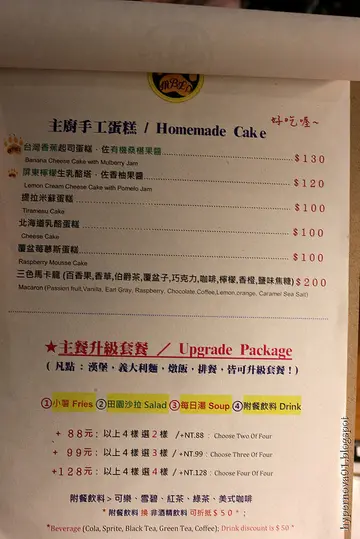 主廚手工蛋糕 / Homemade Cake
好吃喔~
台灣香蕉起司蛋糕，佐有機桑椹果醬 $130
Banana Cheese Cake with Mulberry Jam
屏東檸檬生乳酪塔，佐香柚果醬 $120
Lemon Cream Cheese Cake with Pomelo Jam
提拉米蘇蛋糕 $100
Tirameau Cake
北海道乳酪蛋糕 $100
Cheese Cake
覆盆莓慕斯蛋糕 $100
Raspberry Mousse Cake
三色馬卡龍 (百香果,香草,伯爵茶,覆盆子,巧克力,咖啡,檸檬,香橙,鹽味焦糖) $200
Macaron (Passion fruit,Vanilla, Earl Gray, Raspberry, Chocolate,Coffee,Lemon,orange, Caramel Sea Salt)
★主餐升級套餐 / Upgrade Package
( 凡點：漢堡，義大利麵，燉飯，排餐，皆可升級套餐！)
①小薯 Fries ②田園沙拉 Salad ③每日湯 Soup ④附餐飲料 Drink
+ 88元; 以上 4 樣 選 2 樣 /+NT.88 : Choose Two Of Four
+ 99元; 以上 4 樣 選 3 樣 /+NT.99 : Choose Three Of Four
+128元; 以上 4 樣 選 4 樣 /+NT.128 : Choose Four Of Four
附餐飲料 > 可樂、雪碧、紅茶、綠茶、美式咖啡
* 附餐飲料 換 非酒精飲料 可折抵$50*;
*Beverage (Cola, Sprite, Black Tea, Green Tea, Coffee); Drink discount is $50*
hypernova01.blogspot